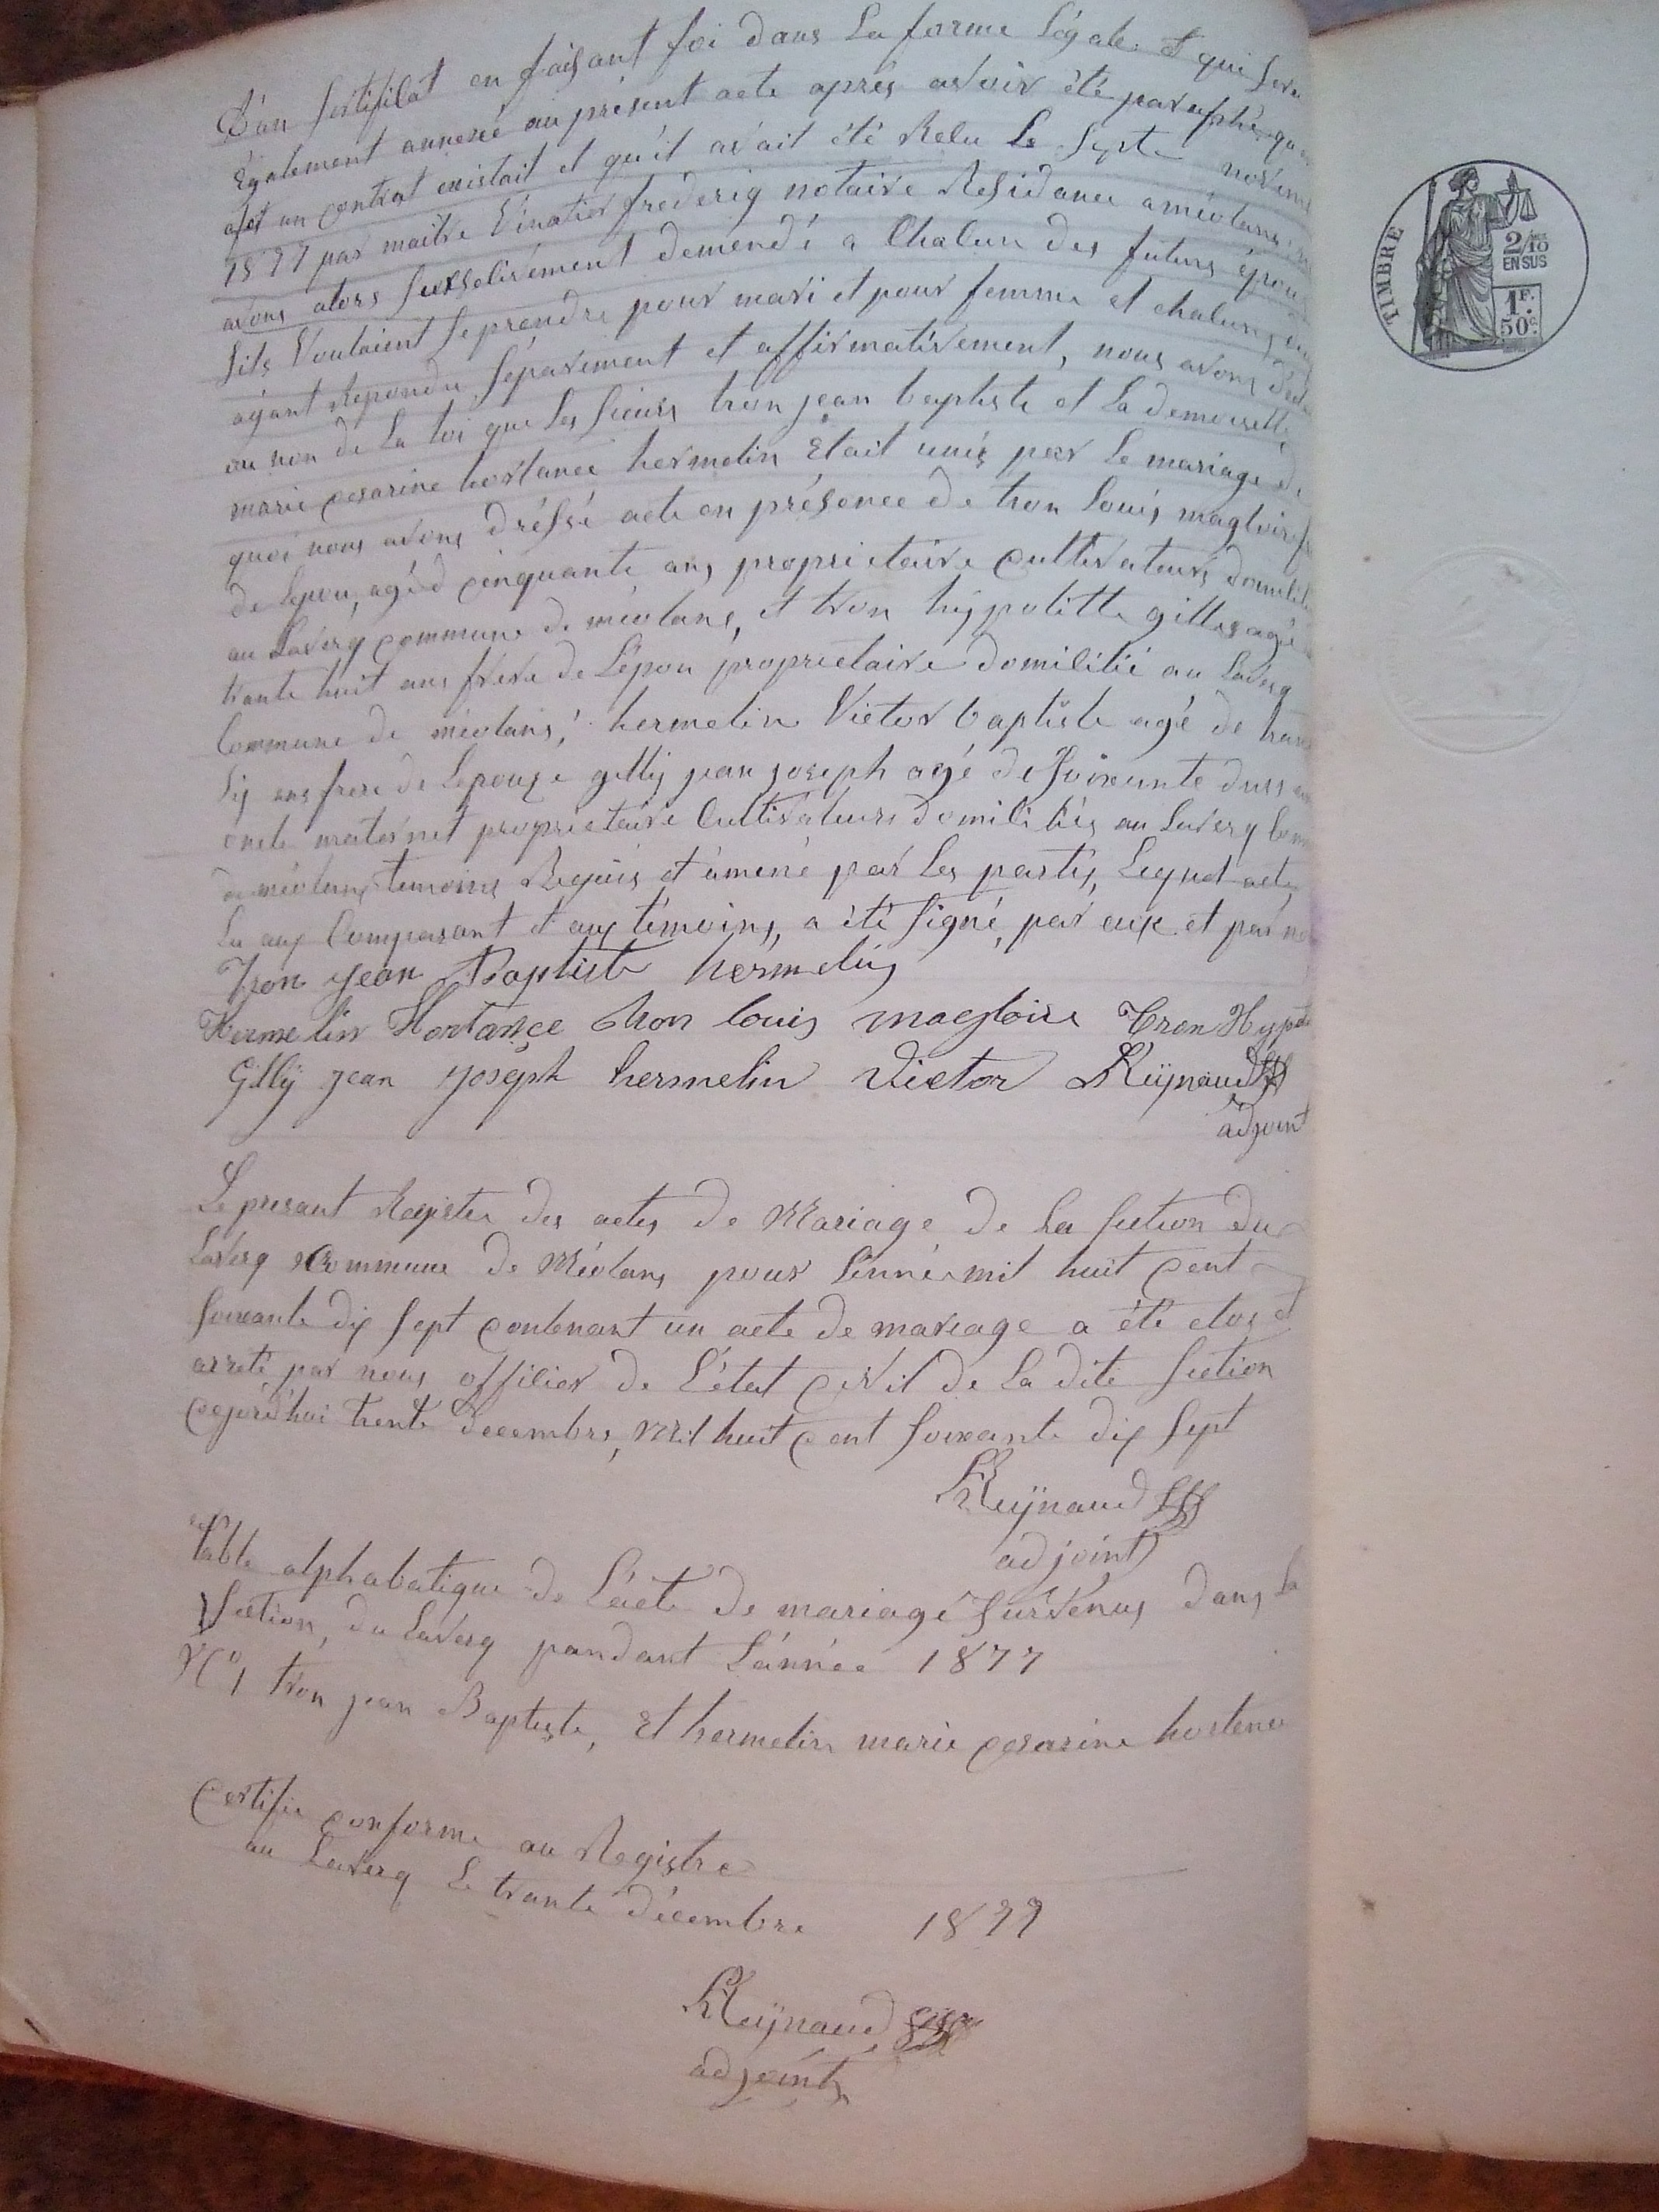 D'un sertifilat en faisant foi dans La forme Légale et qui sera
également annexé au présent acte après avoir été paraphé
un contrat existait et qu'il avait été Relu Le Septe novem
1877 par maitre frederig notaire Residance a méolans
avons alors demendé a Chalun des futurs épou
Sils Voulaient Se prendre pour mari et pour femme et chalun
ayant Repondu Séparement et affirmativement, nous avons
au non de La Loi que Les Sieurs tron jean baptiste et La demoiselle
marie cesarine hortance hermelin Etait unis par Le mariage de
quoi nous avons dréssé acte en présence de tron Louis magloire
de Lepou, agéd cinquante ans, propriétaire cultivateurs domilié
au Laverq commune de méolans, et tron hypolitte gilles agé
trante huit ans frère de Lépou propriétaire domilitié au Laverq
Commune de méolans, hermelin Victor baptiste agé de
Sis ans frere de Lepouze gilly jean joseph agé de Soixante
oncle maternel propriétaire Cultivateurs domilitiés au Laverq
de méolans temoins Requis et améné par Les partis, Lequel acte
Lu aux Comparant et aux témoins, a été Signé, par eux et par
Tron jean Baptiste hermelin
Hermelin Hortançe tron louis magloire Tron Hypoli
Gilly jean joseph hermelin Victor Reÿnaud
adjoint
Le presant Registre des actes de Mariage de La Section du
Laverq Commune de Méolans pour Lannée mil huit cent
Soixante dix Sept contenant un acte de mariage a été clos et
arreté par nous offilier de L'état civil de La dite Section
trente decembre, Mil huit cent Soixante dix Sept
Reÿnaud
adjoint
Table alphabetique de L'acte de mariage Survenus dans La
Section, du Laverq pandant L'année 1877
N° 1 tron jean Baptiste, Et hermelin marie cesarine hortence
Certifie conforme au Registre
au Laverq Le trante décembre 1877
Reÿnaud
adjoint
TIMBRE
2/10 EN SUS
1F.
50c.